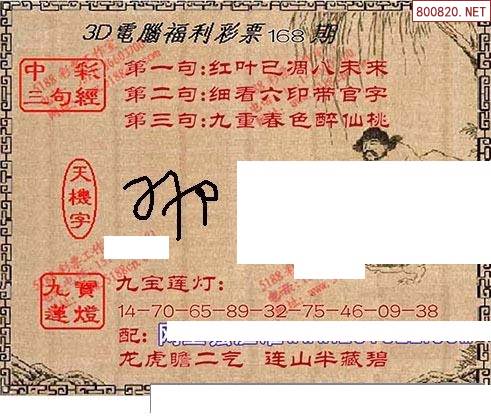 800820.NET
3D電腦福利彩票168期
中彩三句經
第一句:红叶已凋人未来
第二句:细看六印带官字
第三句:九重春色醉仙桃
天機字
九寶蓮燈
九宝莲灯:
14-70-65-89-32-75-46-09-38
配:
龙虎瞻二气 连山半藏碧